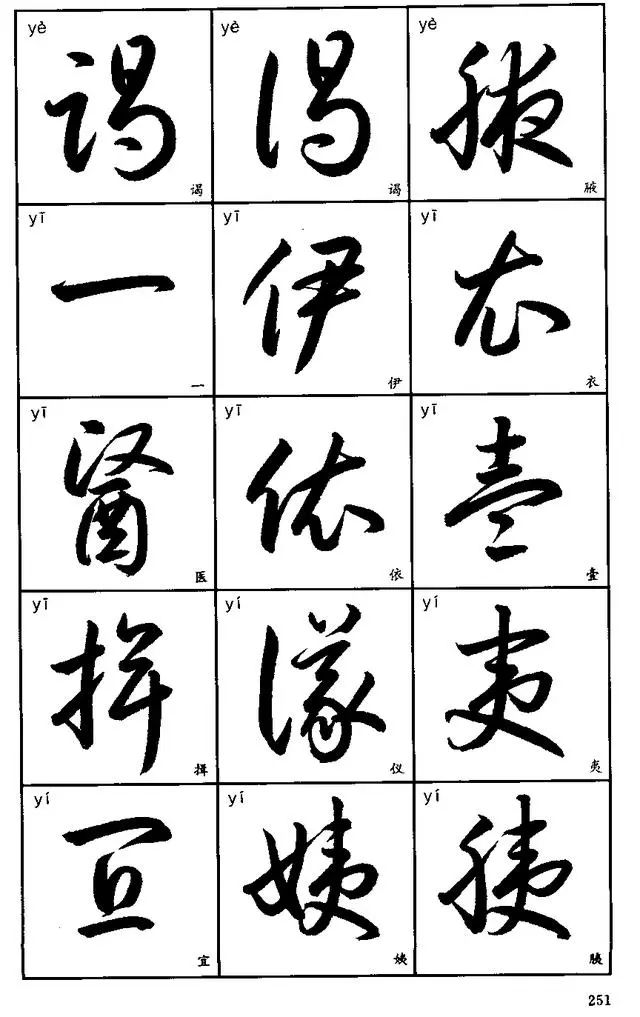 yè yè yè
謁 謁 腋
谒 谒 腋
yī yī yī
一 伊 衣
一 伊 衣
yī yī yī
醫 依 壹
医 依 壹
yī yí yí
揖 儀 夷
揖 仪 夷
yí yí yí
宜 姨 胰
宜 姨 胰
251